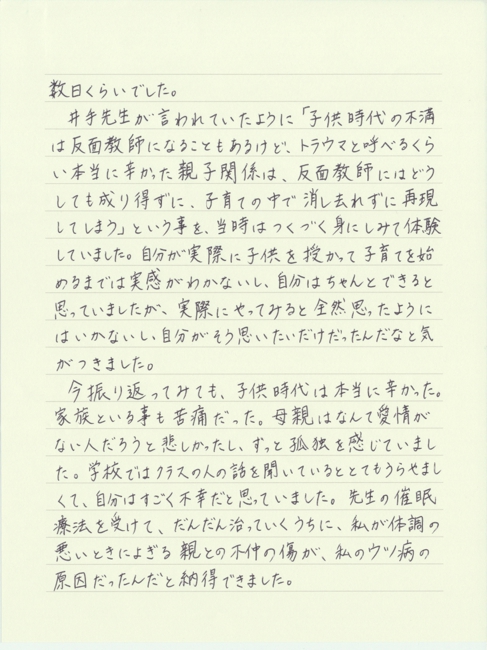 数日くらいでした。
井手先生が言われていたように「子供時代の不満
は反面教師になることもあるけど、トラウマと呼べるくら
い本当に辛かった親子関係は、反面教師にはどう
しても成り得ずに、子育ての中で消し去れずに再現
してしまう」という事を、当時はつくづく身にしみて体験
していました。自分が実際に子供を授かって子育てを始
めるまでは実感がわかないし、自分はちゃんとできると
思っていましたが、実際にやってみると全然思ったように
はいかないし、自分がそう思いたいだけだったんだなと気
がつきました。
今振り返ってみても、子供時代は本当に辛かった。
家族といる事も苦痛だった。母親はなんて愛情が
ない人だろうと悲しかったし、ずっと孤独を感じていまし
た。学校ではクラスの人の話を聞いているととてもうらやまし
くて、自分はすごく不幸だと思っていました。先生の催眠
療法を受けて、だんだん治っていくうちに、私が体調の
悪いときによぎる親との不仲の傷が、私のウツ病の
原因だったんだと納得できました。